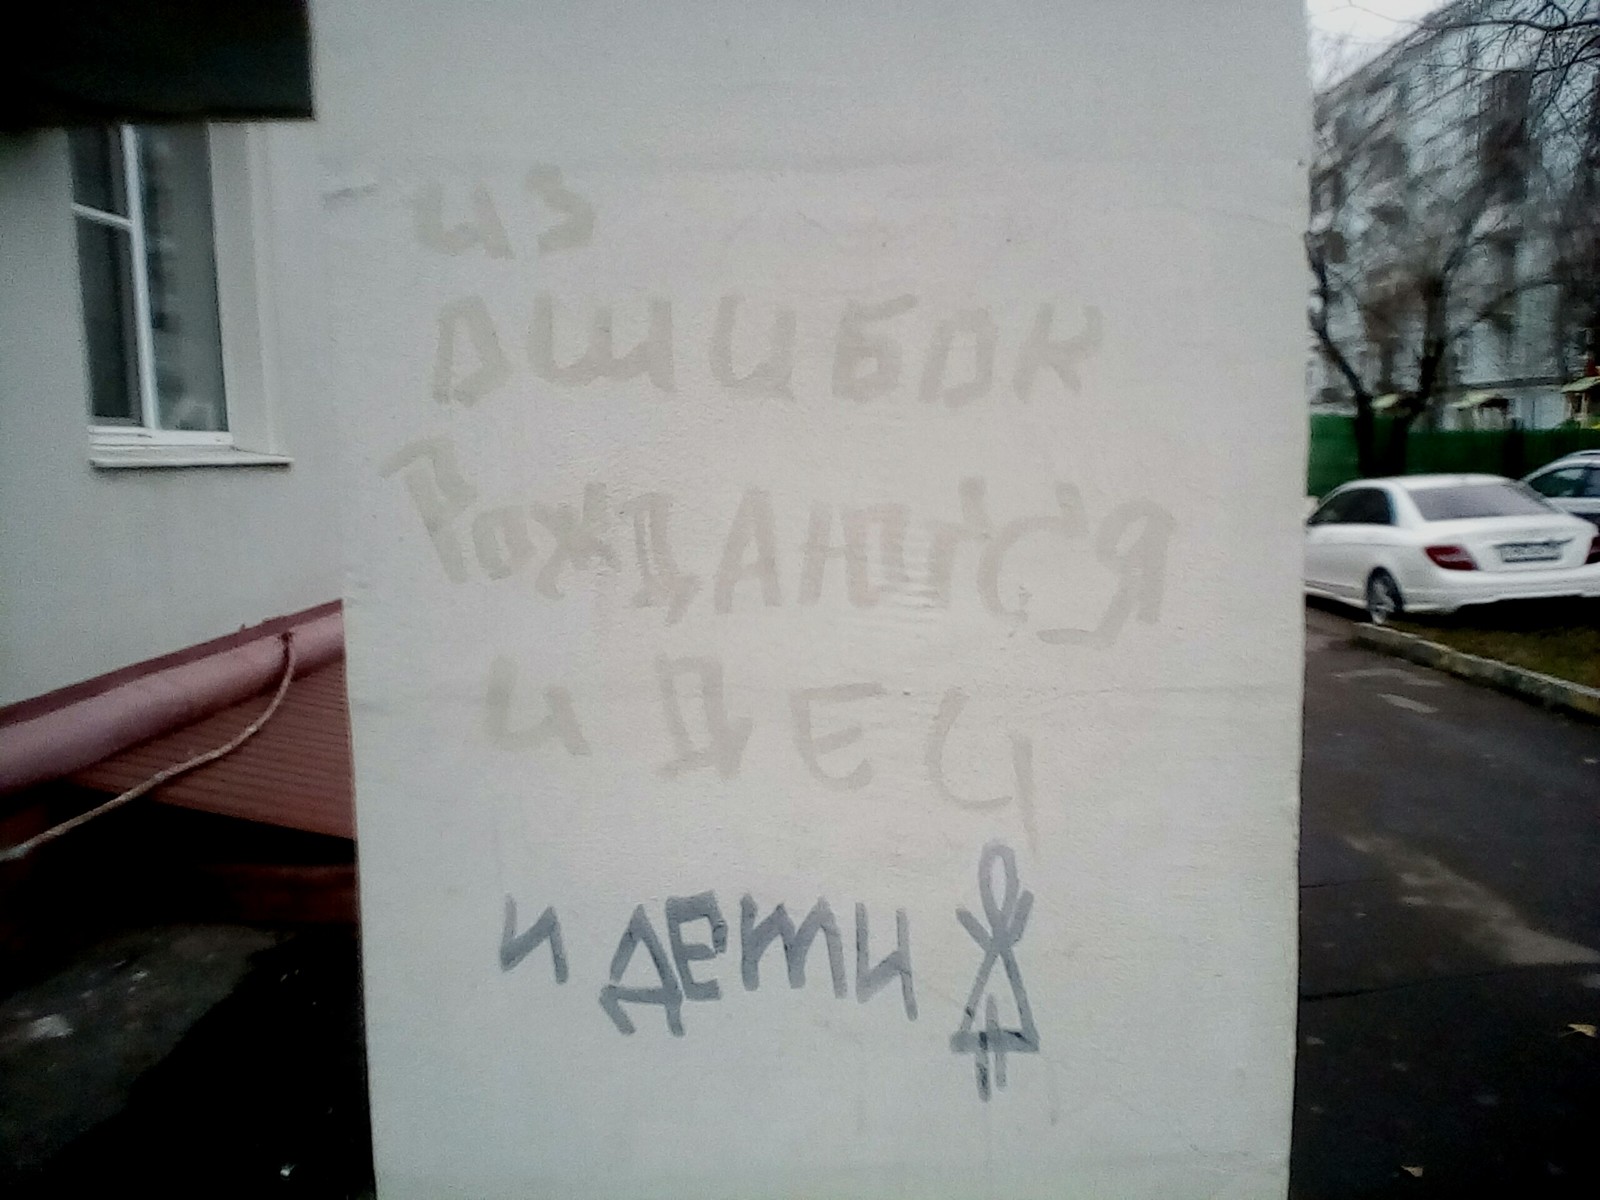 из
ОШИБОК
РОЖДАЮТСЯ
ИДЕИ
и дети